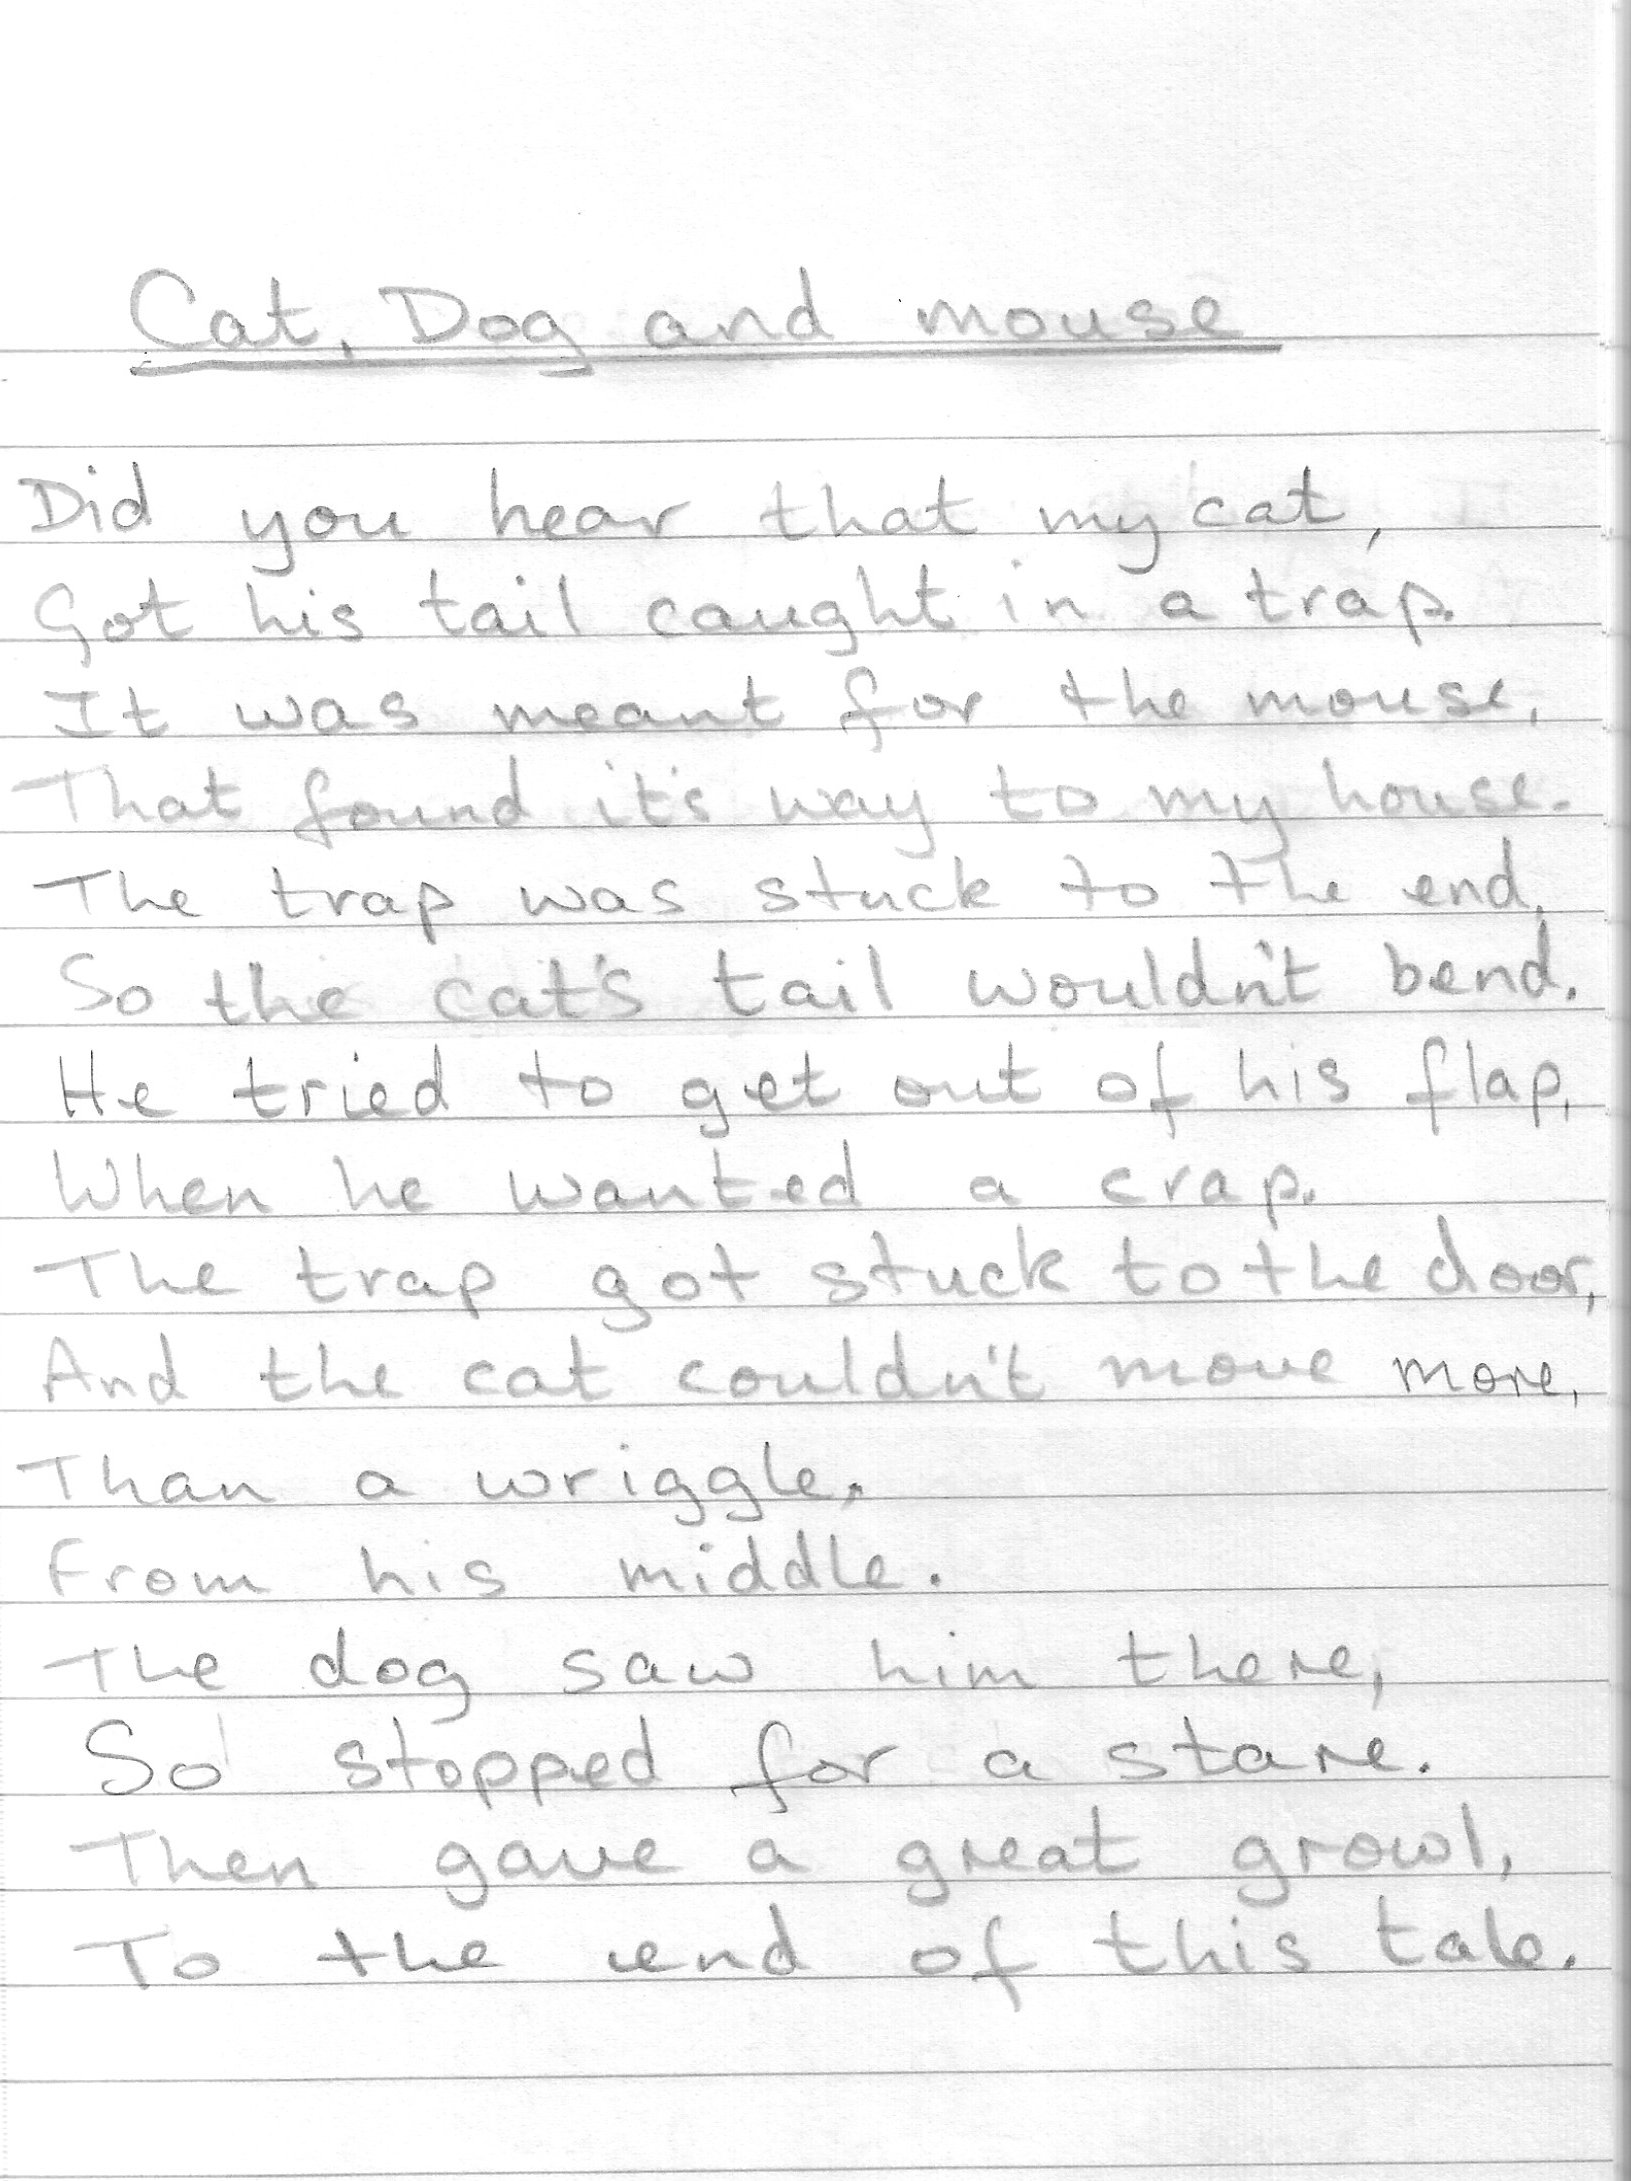 Cat, Dog and mouse
Did you hear that my cat,
Got his tail caught in a trap.
It was meant for the mouse,
That found it's way to my house.
The trap was stuck to the end,
So the cat's tail wouldn't bend.
He tried to get out of his flap,
When he wanted a crap.
The trap got stuck to the door,
And the cat couldn't move more,
Than a wriggle,
From his middle.
The dog saw him there,
So stopped for a stare.
Then gave a great growl,
To the end of this tale.